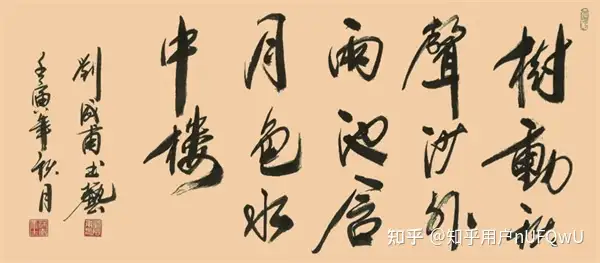 樹動秋
聲沙外
雨池含
月色水
中楼
劉成甫书藝
壬寅年秋月
知乎 @知乎用户nUFQwU